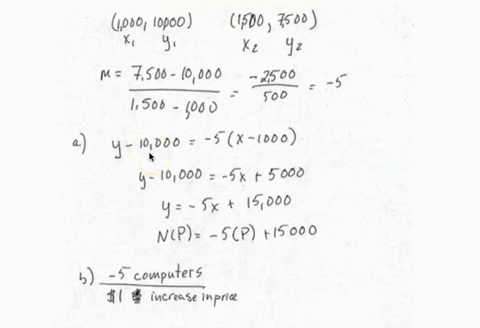 (1,000, 10,000) (1,500, 7,500)
x₁ y₁ x₂ y₂
M = 7,500 - 10,000 / 1,500 - 1,000 = -2,500 / 500 = -5
a) y - 10,000 = -5(x - 1000)
y - 10,000 = -5x + 5000
y = -5x + 15,000
N(P) = -5(P) + 15000
b) -5 computers
$1 increase in price